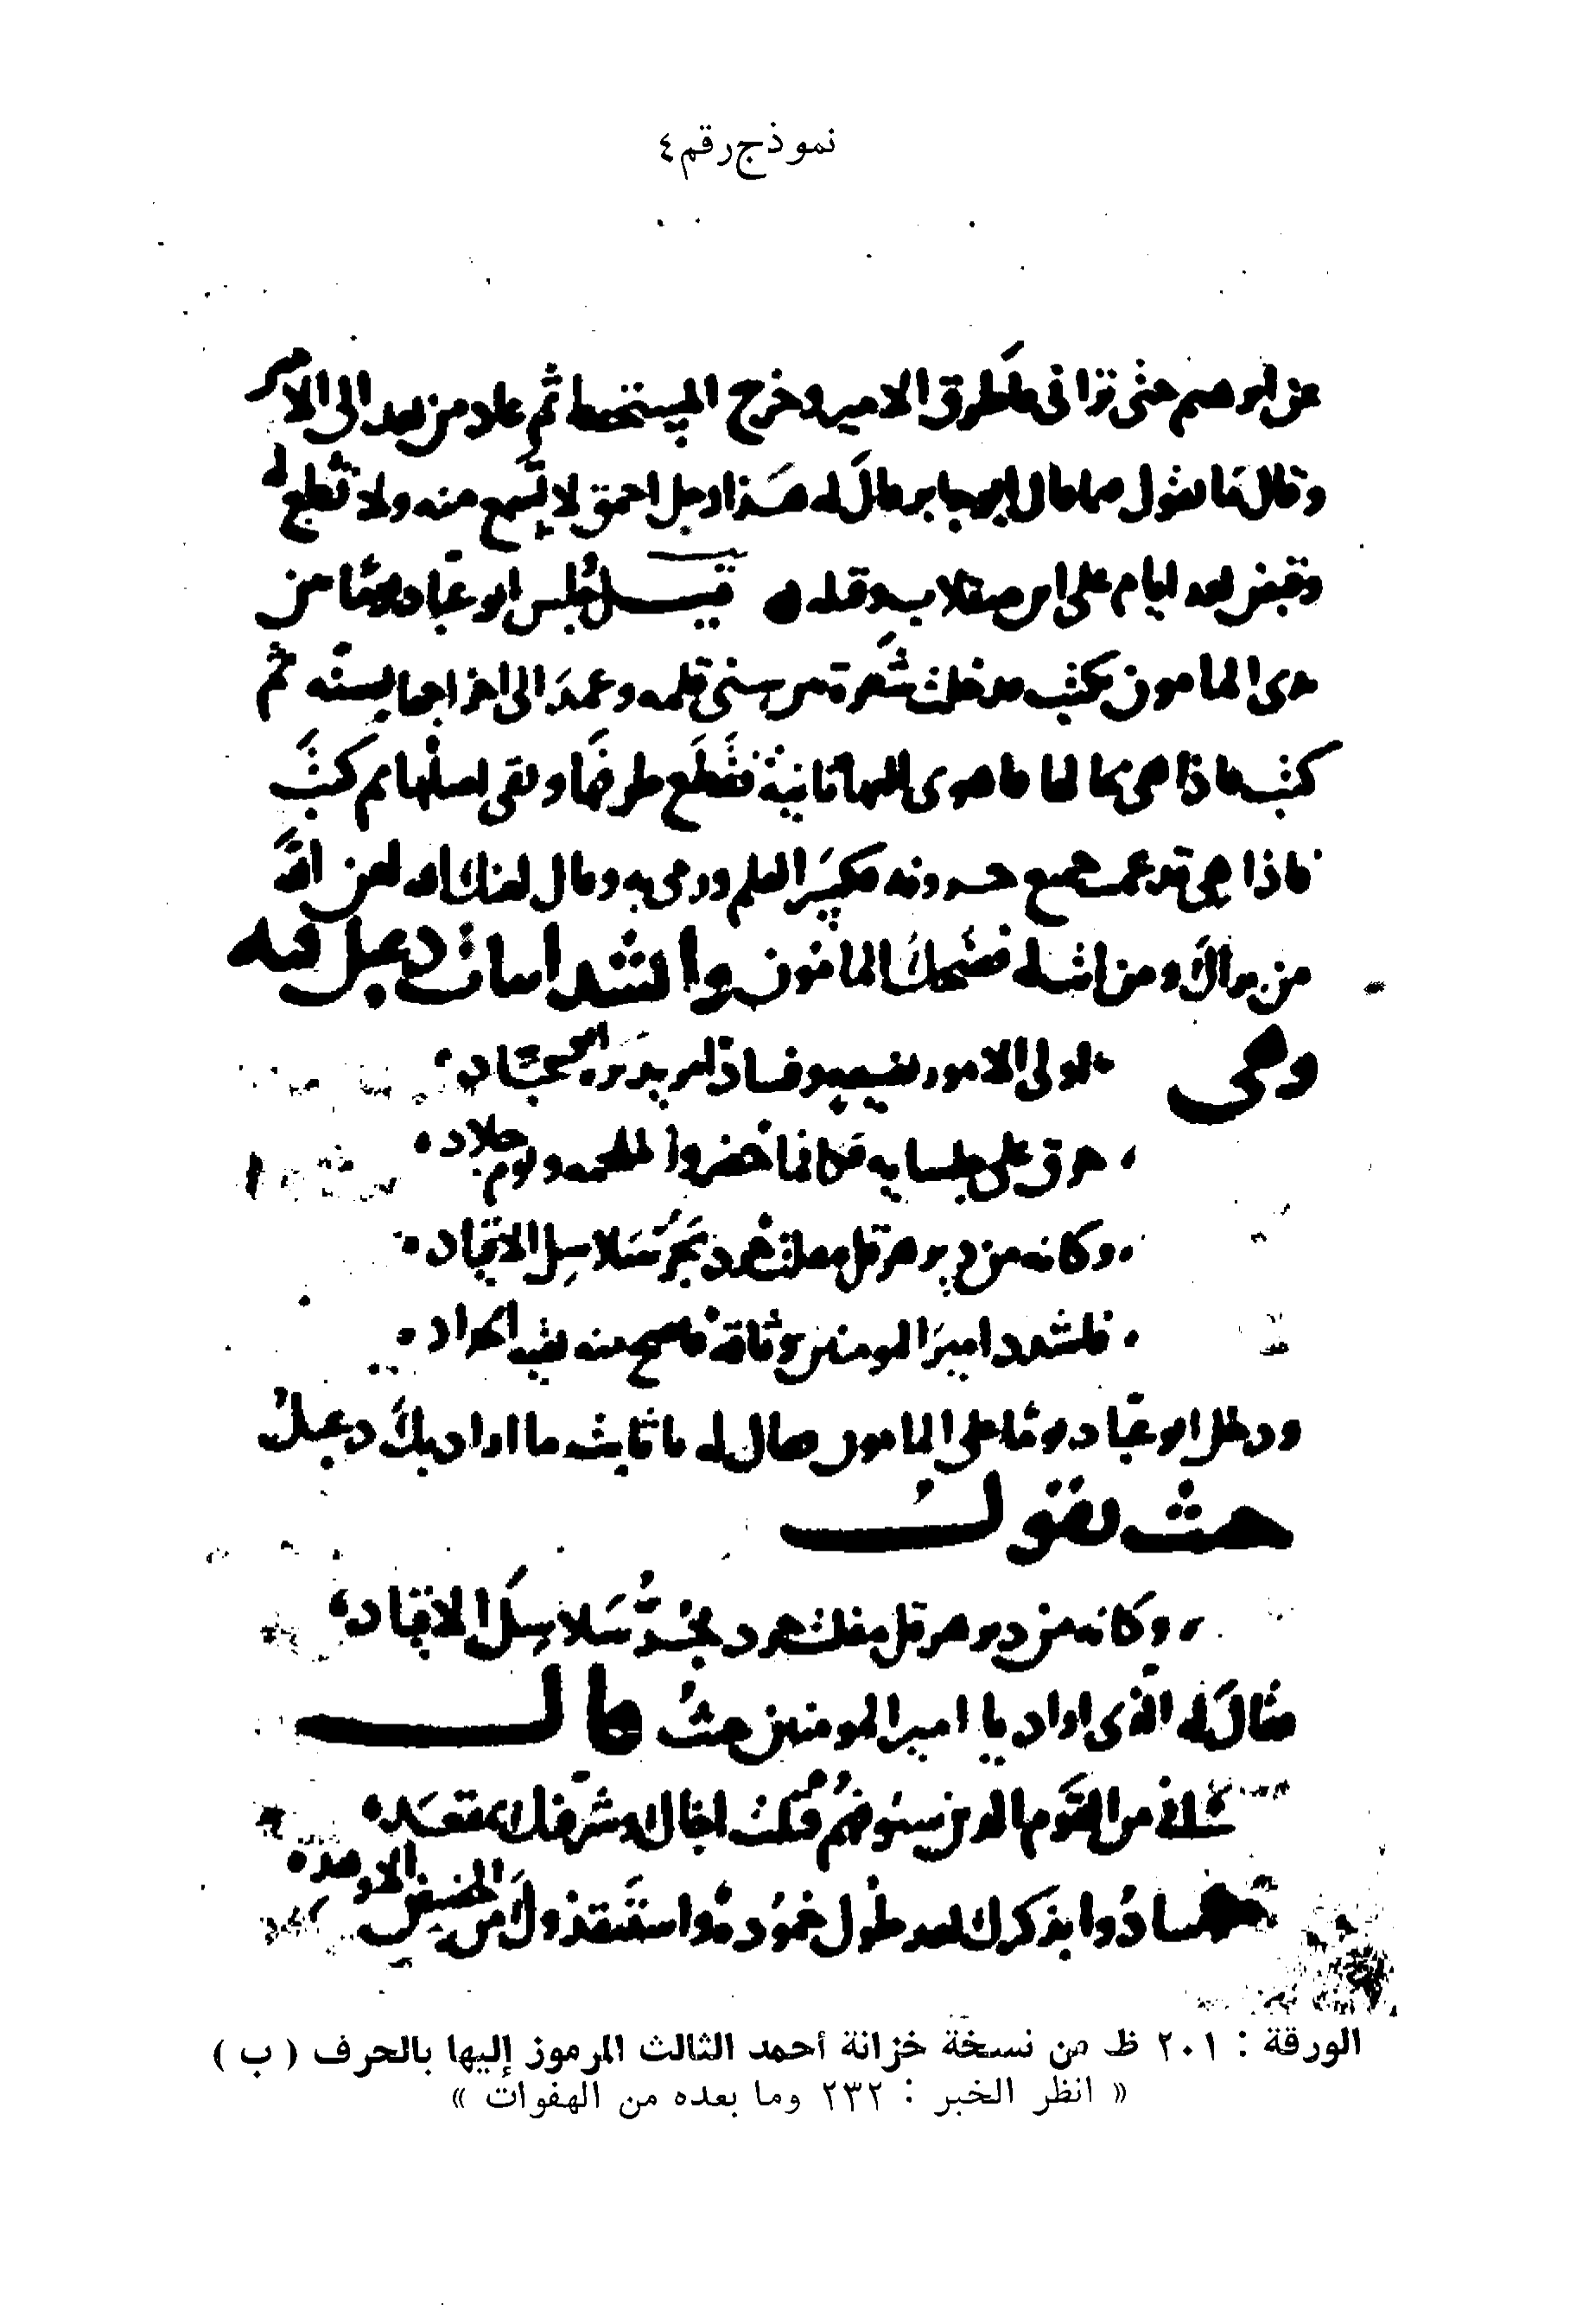 نموذج رقم ٤
عن ابرهيم حتى تراني فاطرق الامير وخرج المستخط ثم عاد من بعد الى الامير
وقال ما تقول فيما قال ابو جابر قال له هذا رجل احمق لا تسمع منه ولا تطع له
وقبض بعد ايام على ابن صقلاب وقتله قيل جلس ابو عباد يوما بين
يدي المامون يكتب فدخلت شعرة بين سني قلمه وعمد الى اخراجها بسنه ثم
كتب فاذا هي بحالها فاهوى اليها ثانية فقطع طرفها وبقي اصلها ثم كتب
فاذا هي قد عمت جميع حروفه فكسر القلم ورمى به وقال لعنك الله لعن الله
من براك ومن انت له فضحك المامون وانشد ابيات دعبل فيه
وهي اولى الامور بضيعة وفساد امر يدبره ابو عباد
حرق على جلسايه فكانما حضروا لملحمة ويوم جلاد
وكانه من دير هرقل مفلت حرد يجر سلاسل الاقياد
فاشدد امير المومنين وثاقه فاصح منه بقية الحداد
ودخل ابو عباد يوما على المامون فقال له يا ثابت ما اراد بك دعبل
حيث يقول
وكانه من دير هرقل مفلت حرد يجر سلاسل الاقياد
فقال له الذي اراد يا امير المومنين حيث قال
من القوم الذين سيوفهم قتلت اخاك وشرفتك بمقعد
شادوا بذكرك بعد طول خموده واستنقذوك من الحضيض الاوهد
الورقة : ٢٠١ ظ من نسخة خزانة أحمد الثالث المرموز إليها بالحرف ( ب )
« انظر الخبر : ٢٣٢ وما بعده من الهفوات »